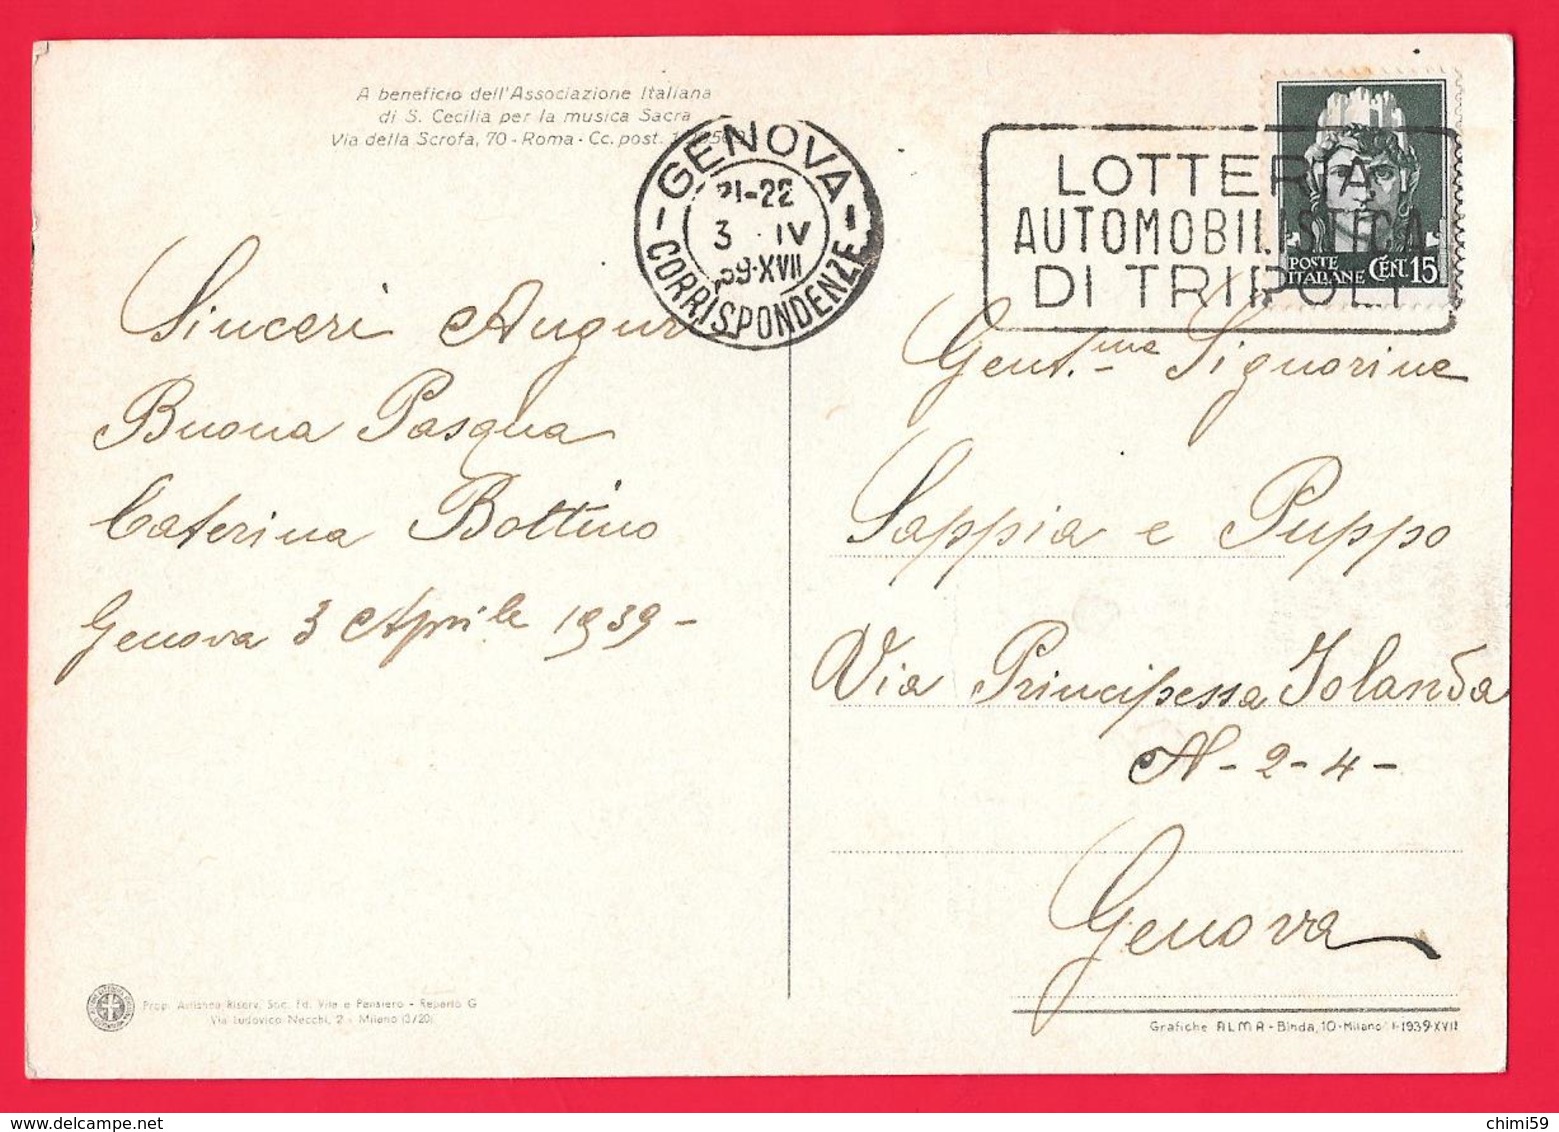 A beneficio dell'Associazione Italiana
di S. Cecilia per la musica Sacra
Via della Scrofa, 70 - Roma - Cc. post.
GENOVA
21-22
3 IV
39·XVII
CORRISPONDENZE
LOTTERIA
AUTOMOBILISTICA
DI TRIPOLI
POSTE
ITALIANE CENT. 15
Sinceri Auguri
Buona Pasqua
Caterina Bottino
Genova 3 Aprile 1939 -
Gent.me Signorine
Sappia e Puppo
Via Principessa Jolanda
N - 2 - 4 -
Genova
Prop. Artistica Riserv. Soc. Ed. Vita e Pensiero - Reparto G
Via Ludovico Necchi, 2 - Milano (3/20)
Grafiche ALMA - Binda, 10 - Milano 1-1939-XVII
© chimi59